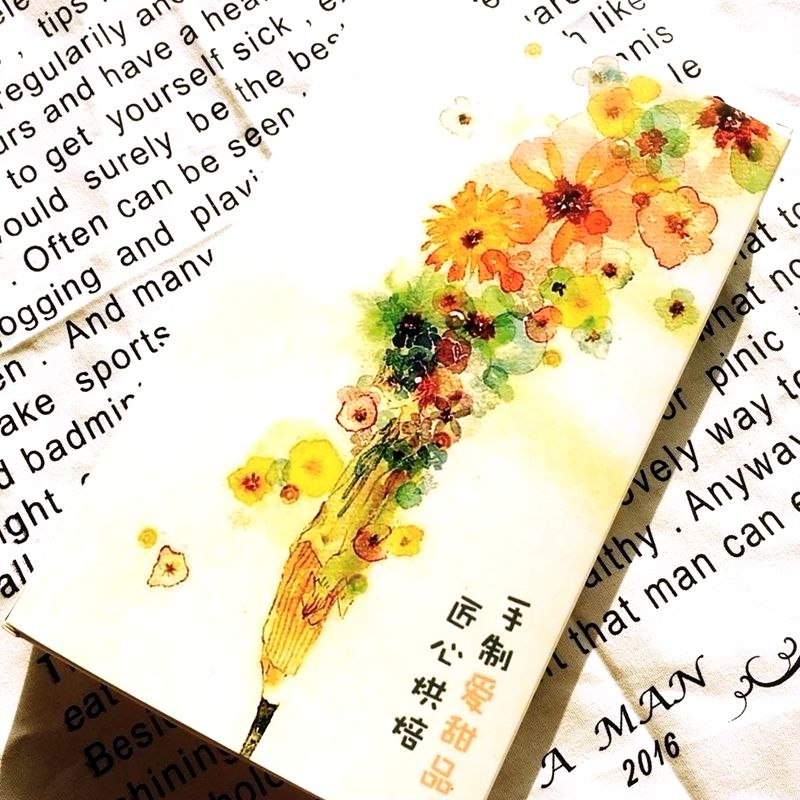 tips
regularly and
urs and have a hea
to get yourself sick , e
ould surely be the bes
. Often can be seen ,
ogging and playi
en . And many
ake sports
d badmin
ight
all
like
nnis
le
hat to
what no
or pinic
ovely way to
althy . Anyway
t that man can e
手制爱甜品
匠心烘焙
eat
Besi
hining
A MAN
2016